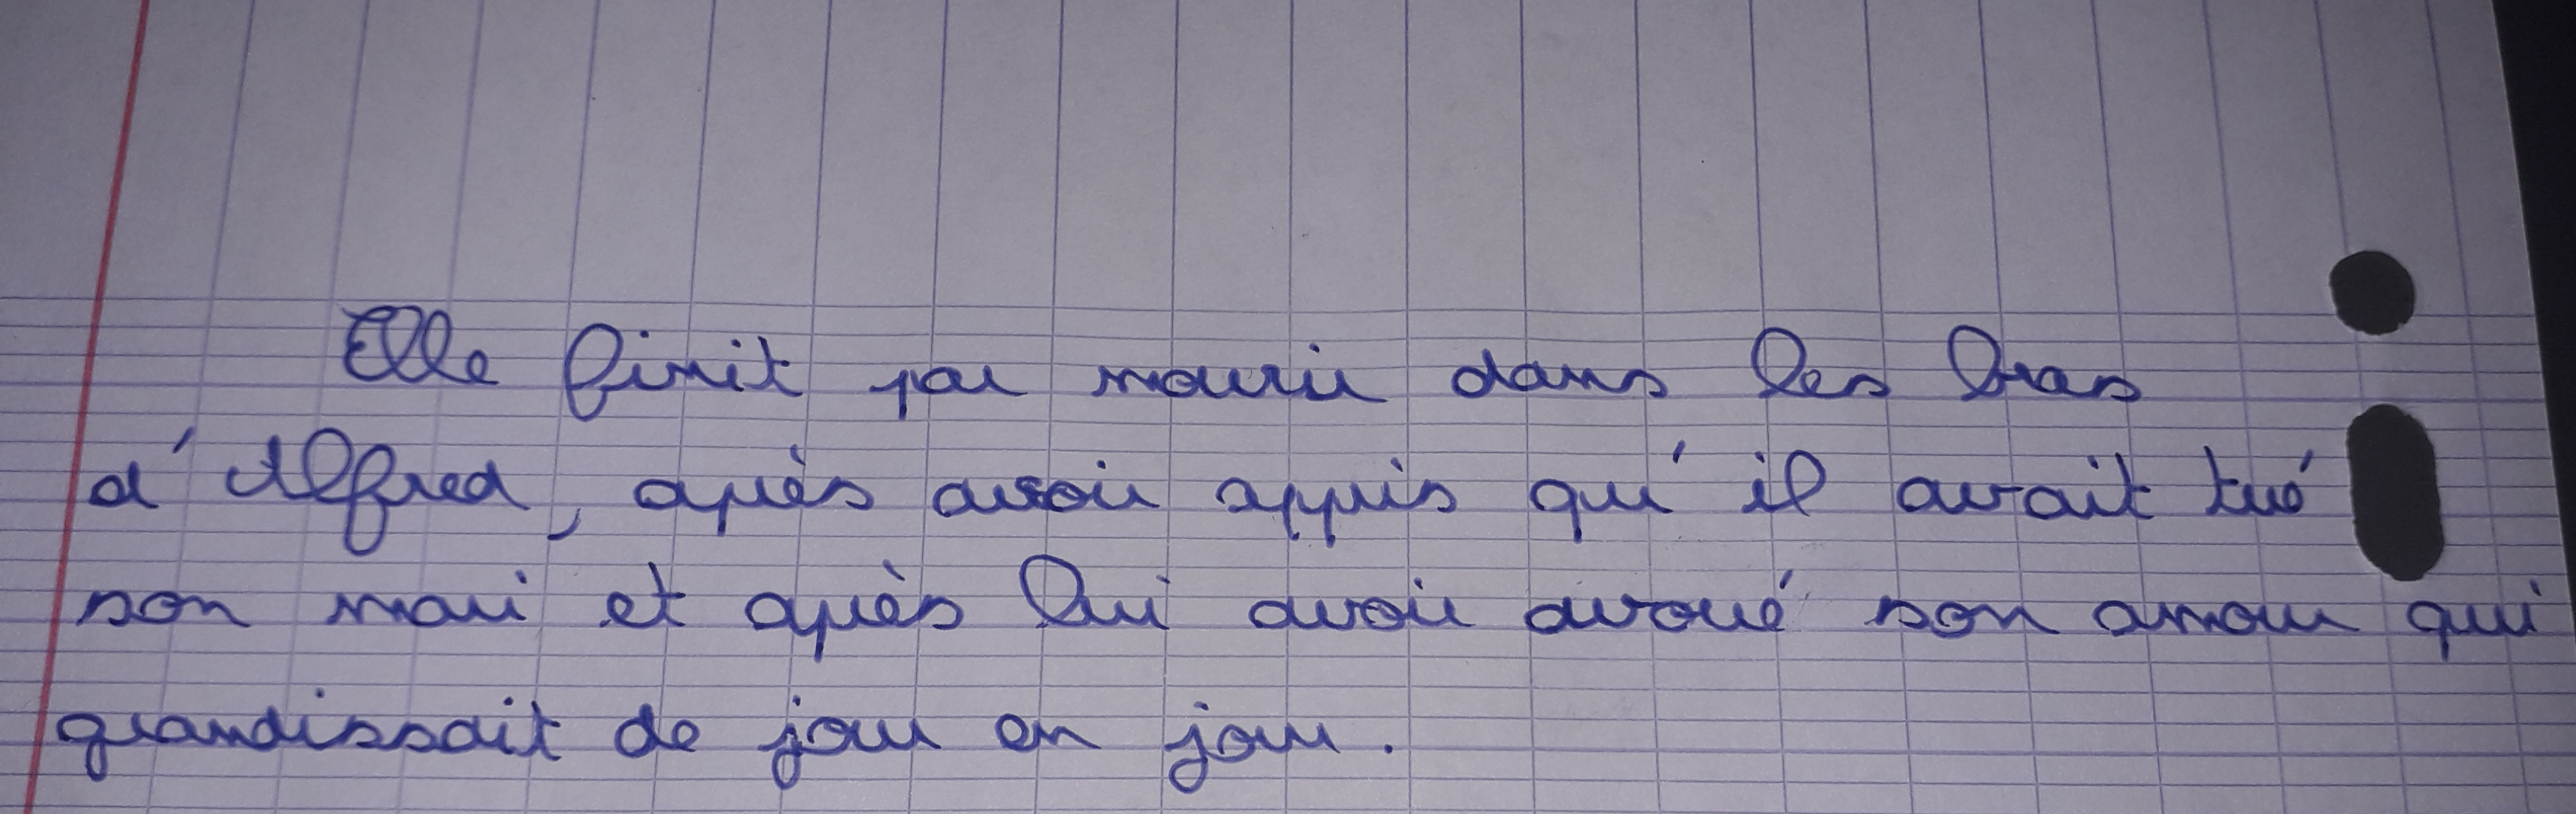 Elle finit par mourir dans les bras
d'Alfred, après avoir appris qu'il avait tué
son mari et après lui avoir avoué son amour qui
grandissait de jour en jour.